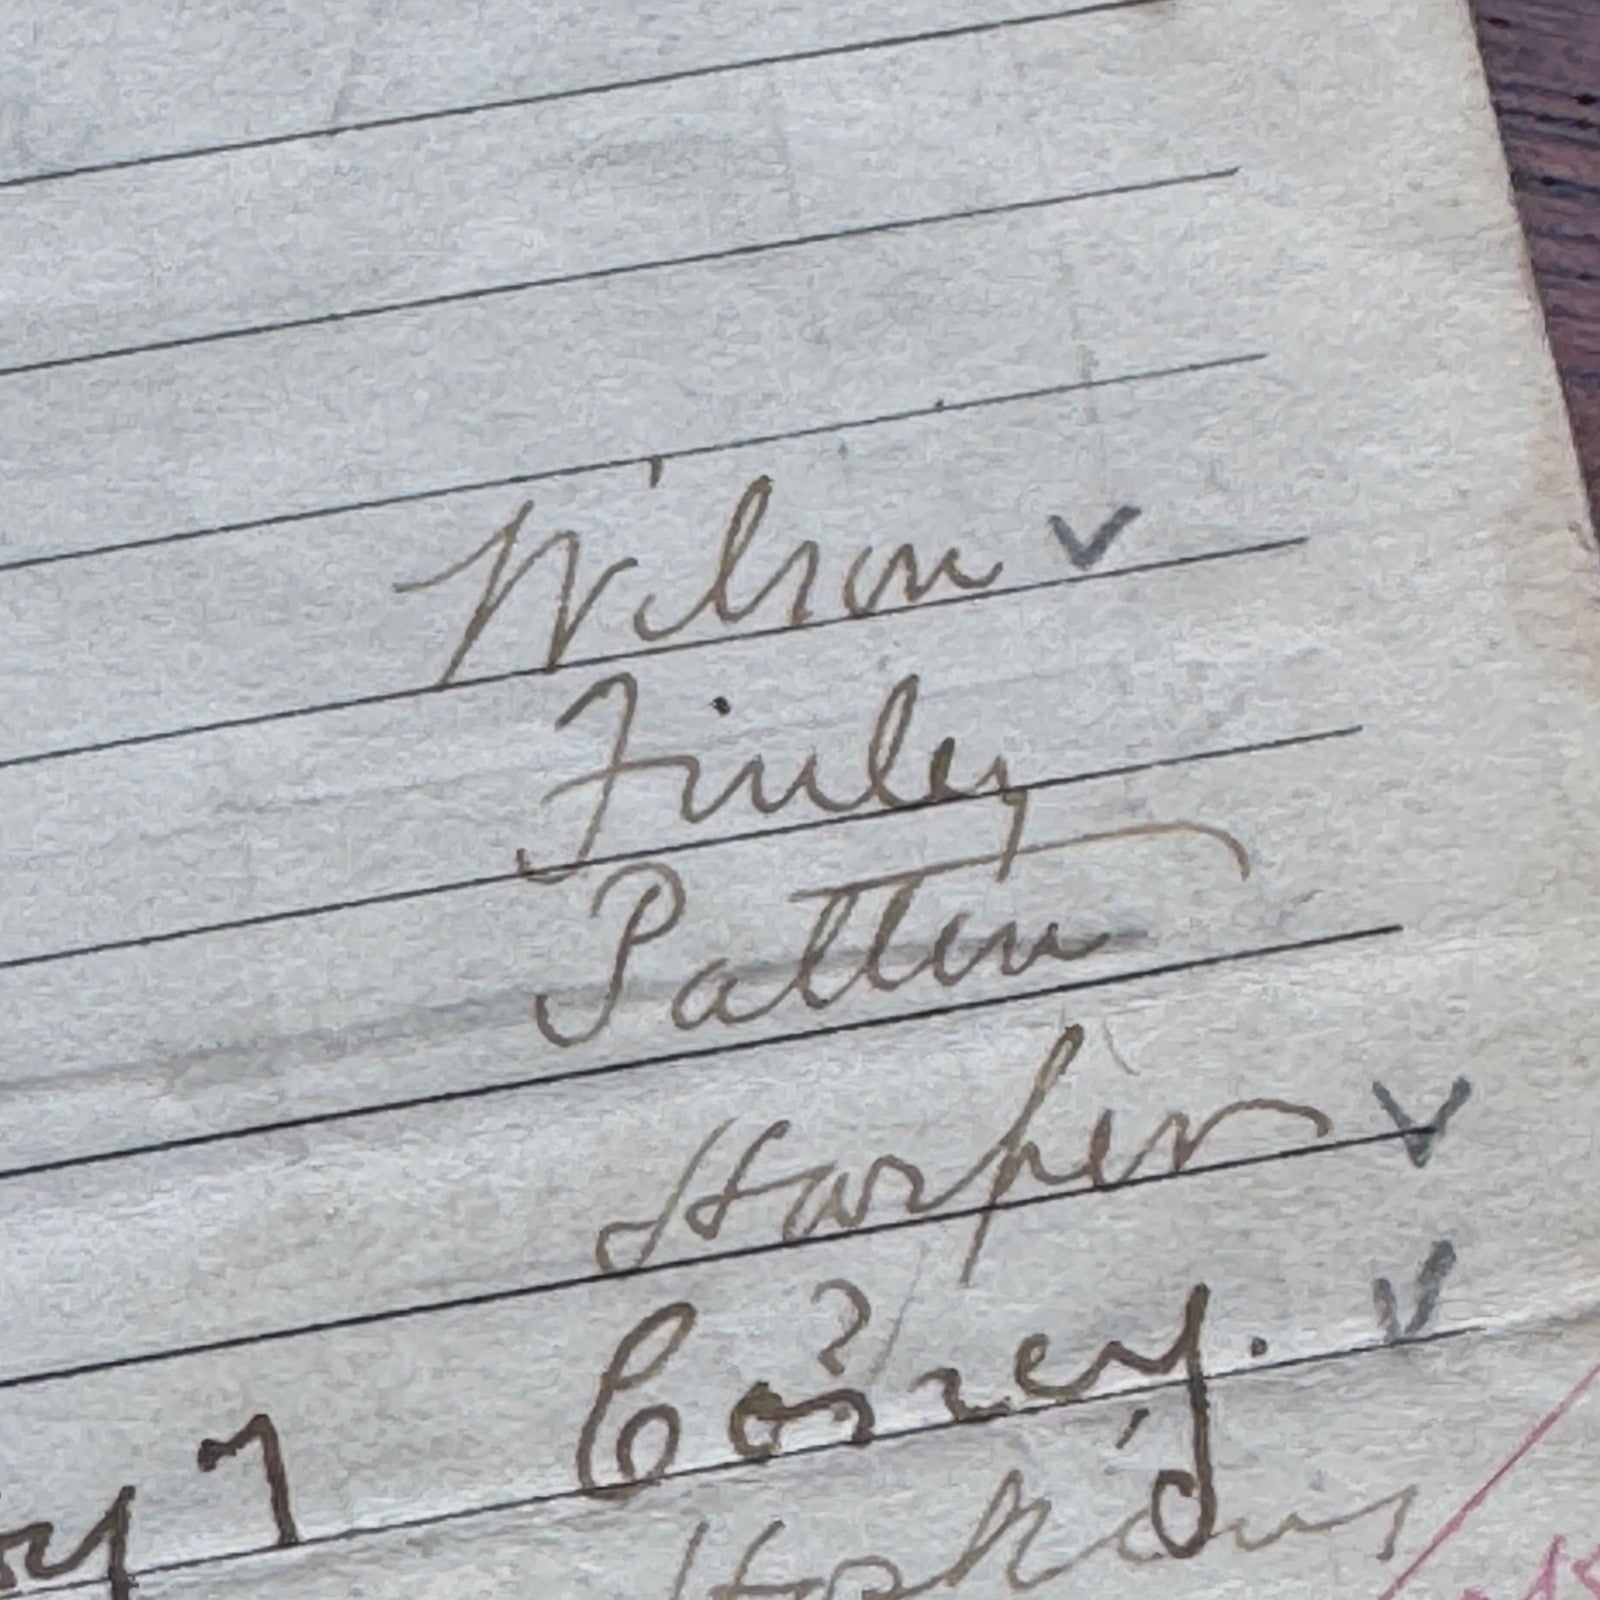 Wilson ✓
Finley
Patten
Harper ✓
Corey. ✓
7
Hopkins